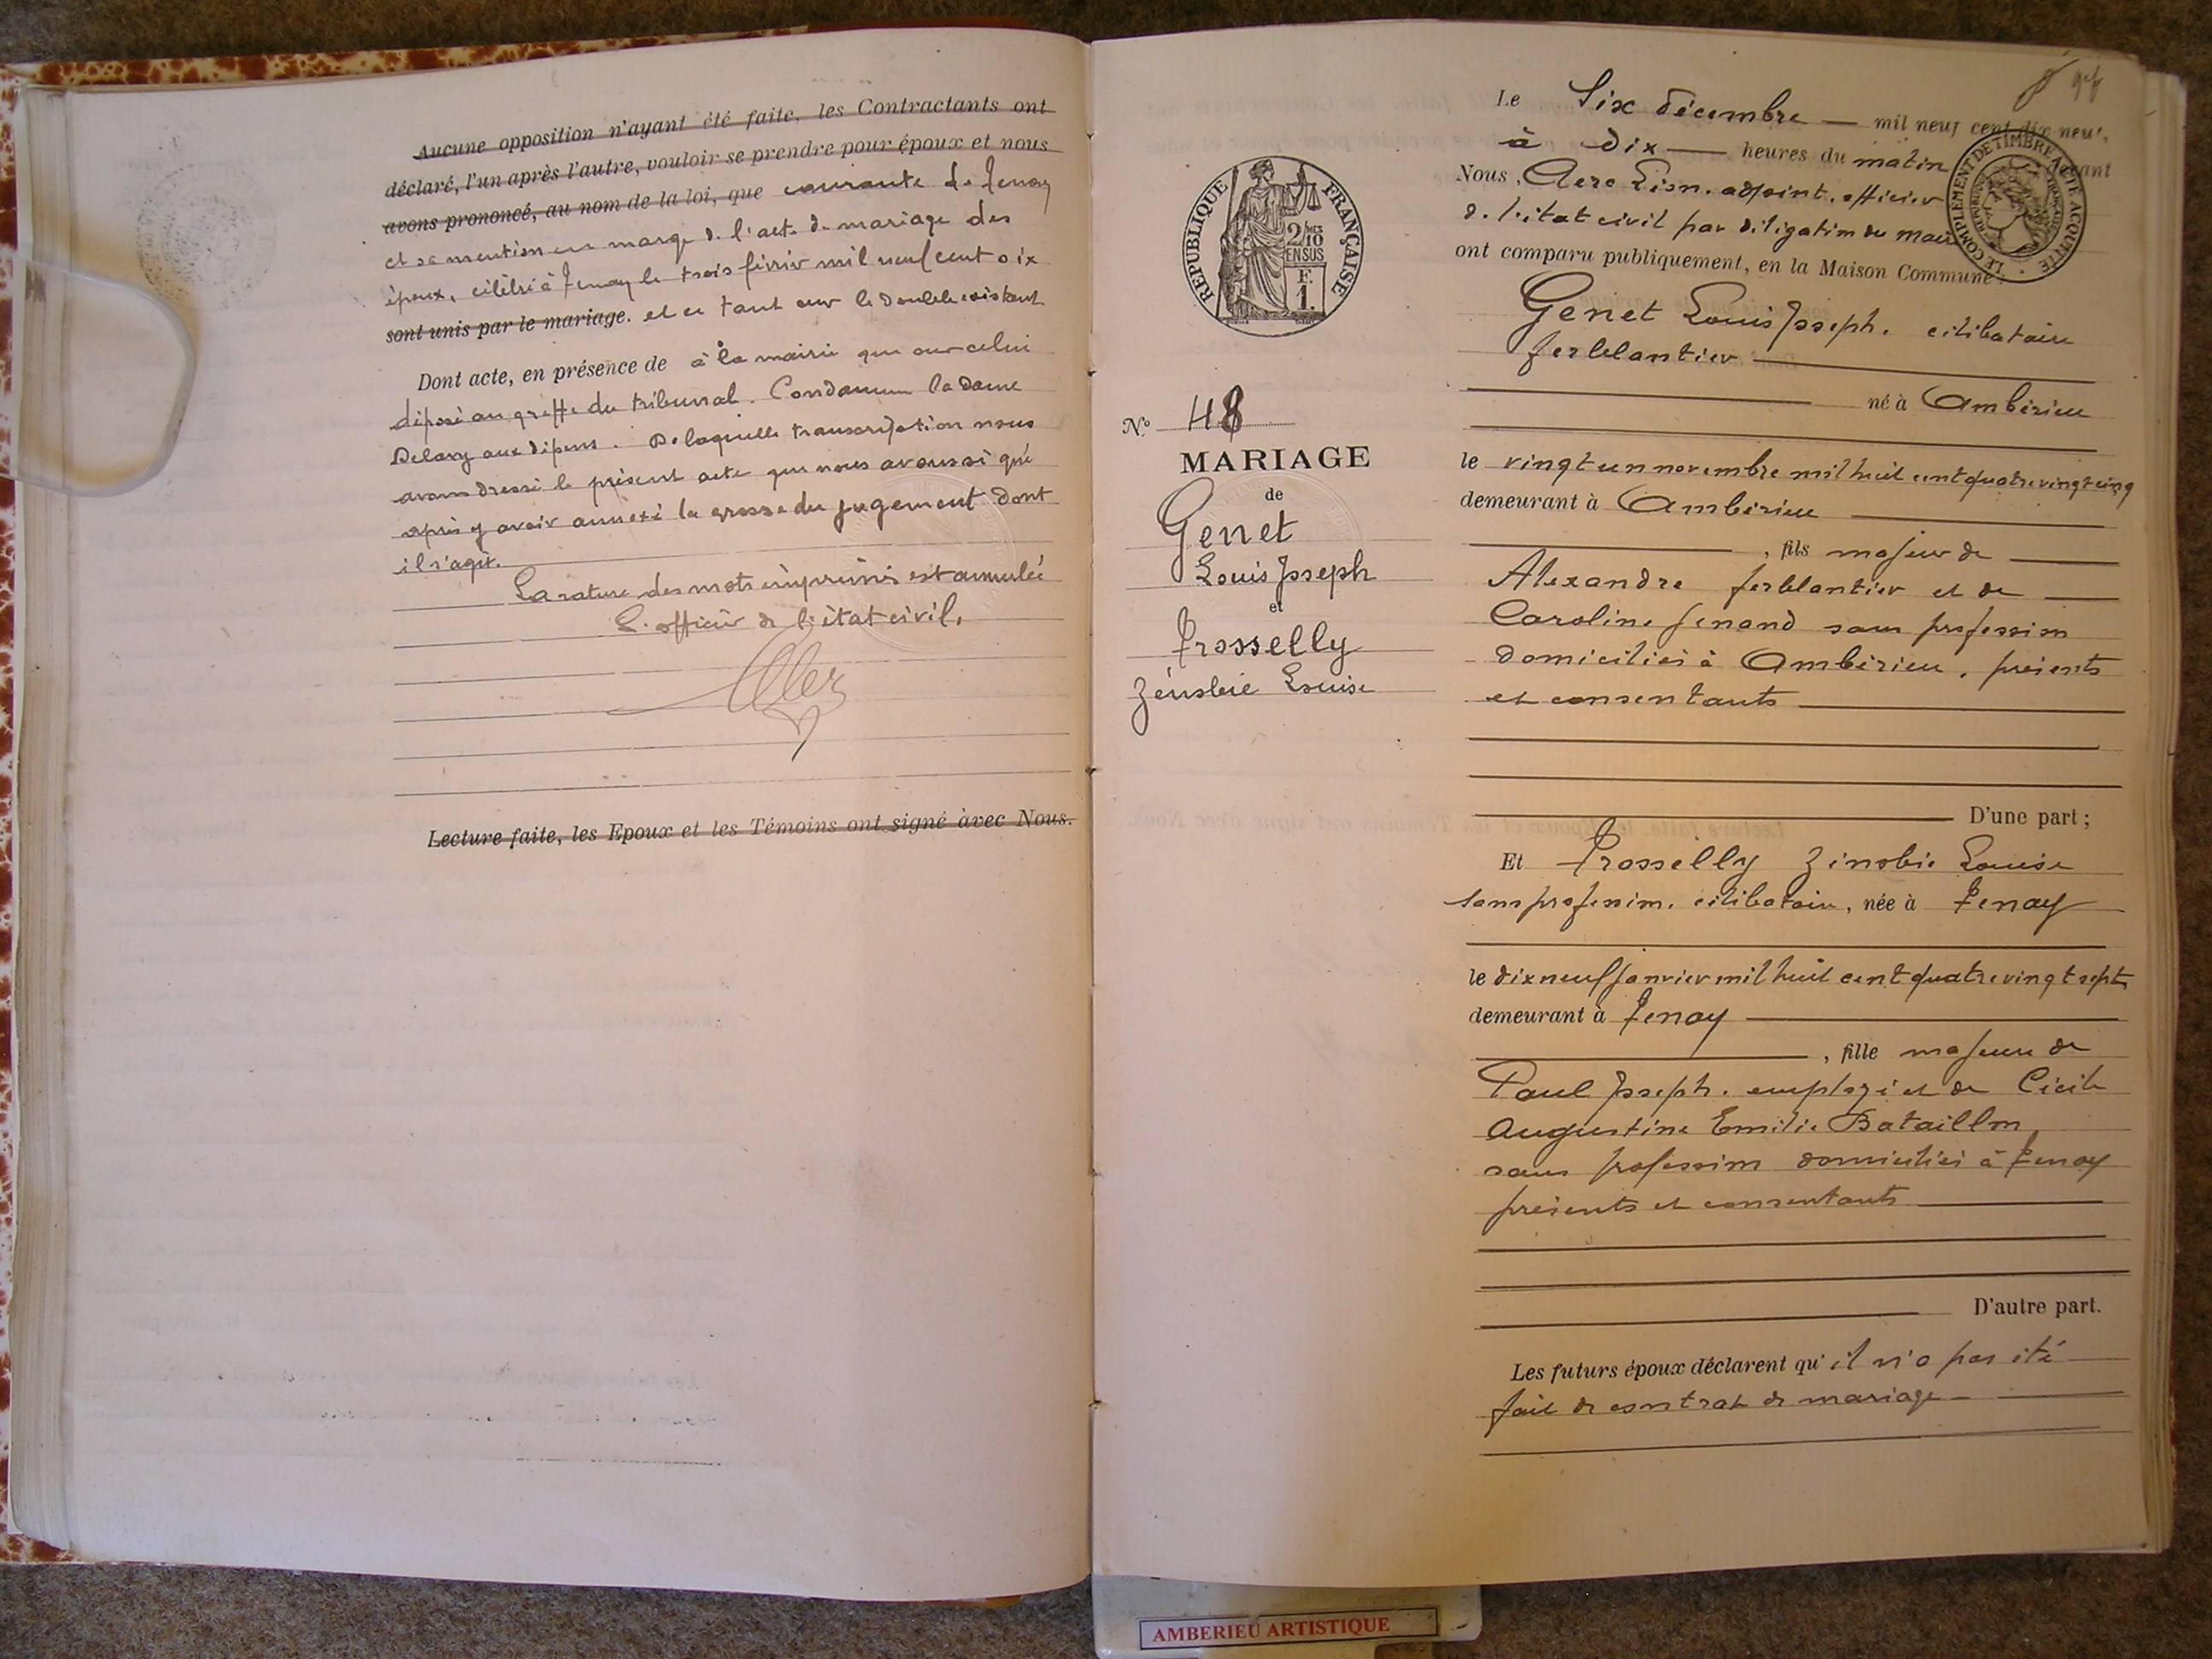 Aucune opposition n'ayant été faite, les Contractants ont
déclaré, l'un après l'autre, vouloir se prendre pour époux et nous
avons prononcé, au nom de la loi, que courante de Tenay
et sa mention en marge de l'acte de mariage des
époux, célébré à Tenay le trois février mil neuf cent dix
sont unis par le mariage. et ce tant sur le double existant
Dont acte, en présence de à la mairie que sur celui
déposé au greffe du tribunal. Condamne la dame
Delary aux dépens. De laquelle transcription nous
avons dressé le présent acte que nous avons signé
après y avoir annexé la grosse du jugement dont
il s'agit.
La rature des mots imprimés est annulée
L'officier de l'état civil,
Lecture faite, les Epoux et les Témoins ont signé avec Nous.
Le Six décembre mil neuf cent dix neuf,
à dix heures du matin devant
Nous, Aero Léon, adjoint, officier
de l'état civil par délégation du maire
ont comparu publiquement, en la Maison Commune:
LE COMPLEMENT DE TIMBRE A ÉTÉ ACQUITTÉ
RÉPUBLIQUE FRANÇAISE
2/10 MES
EN SUS
F.
1.
Genet Louis Joseph, célibataire
ferblantier
né à Ambérieu
le vingt un novembre mil huit cent quatre vingt cinq
demeurant à Ambérieu
, fils majeur de
Alexandre ferblantier et de
Caroline Genand sans profession
domiciliés à Ambérieu, présents
et consentants
D'une part;
No 48
MARIAGE
de
Genet
Louis Joseph
et
Trosselly
Zénobie Louise
Et Trosselly Zénobie Louise
sans profession, célibataire, née à Tenay
le dix neuf janvier mil huit cent quatre vingt sept
demeurant à Tenay
, fille majeure de
Paul Joseph, employé et de Cécile
Augustine Emilie Bataillon,
sans profession domiciliés à Tenay
présents et consentants
D'autre part.
Les futurs époux déclarent qu'il n'a pas été
fait de contrat de mariage
AMBERIEU ARTISTIQUE